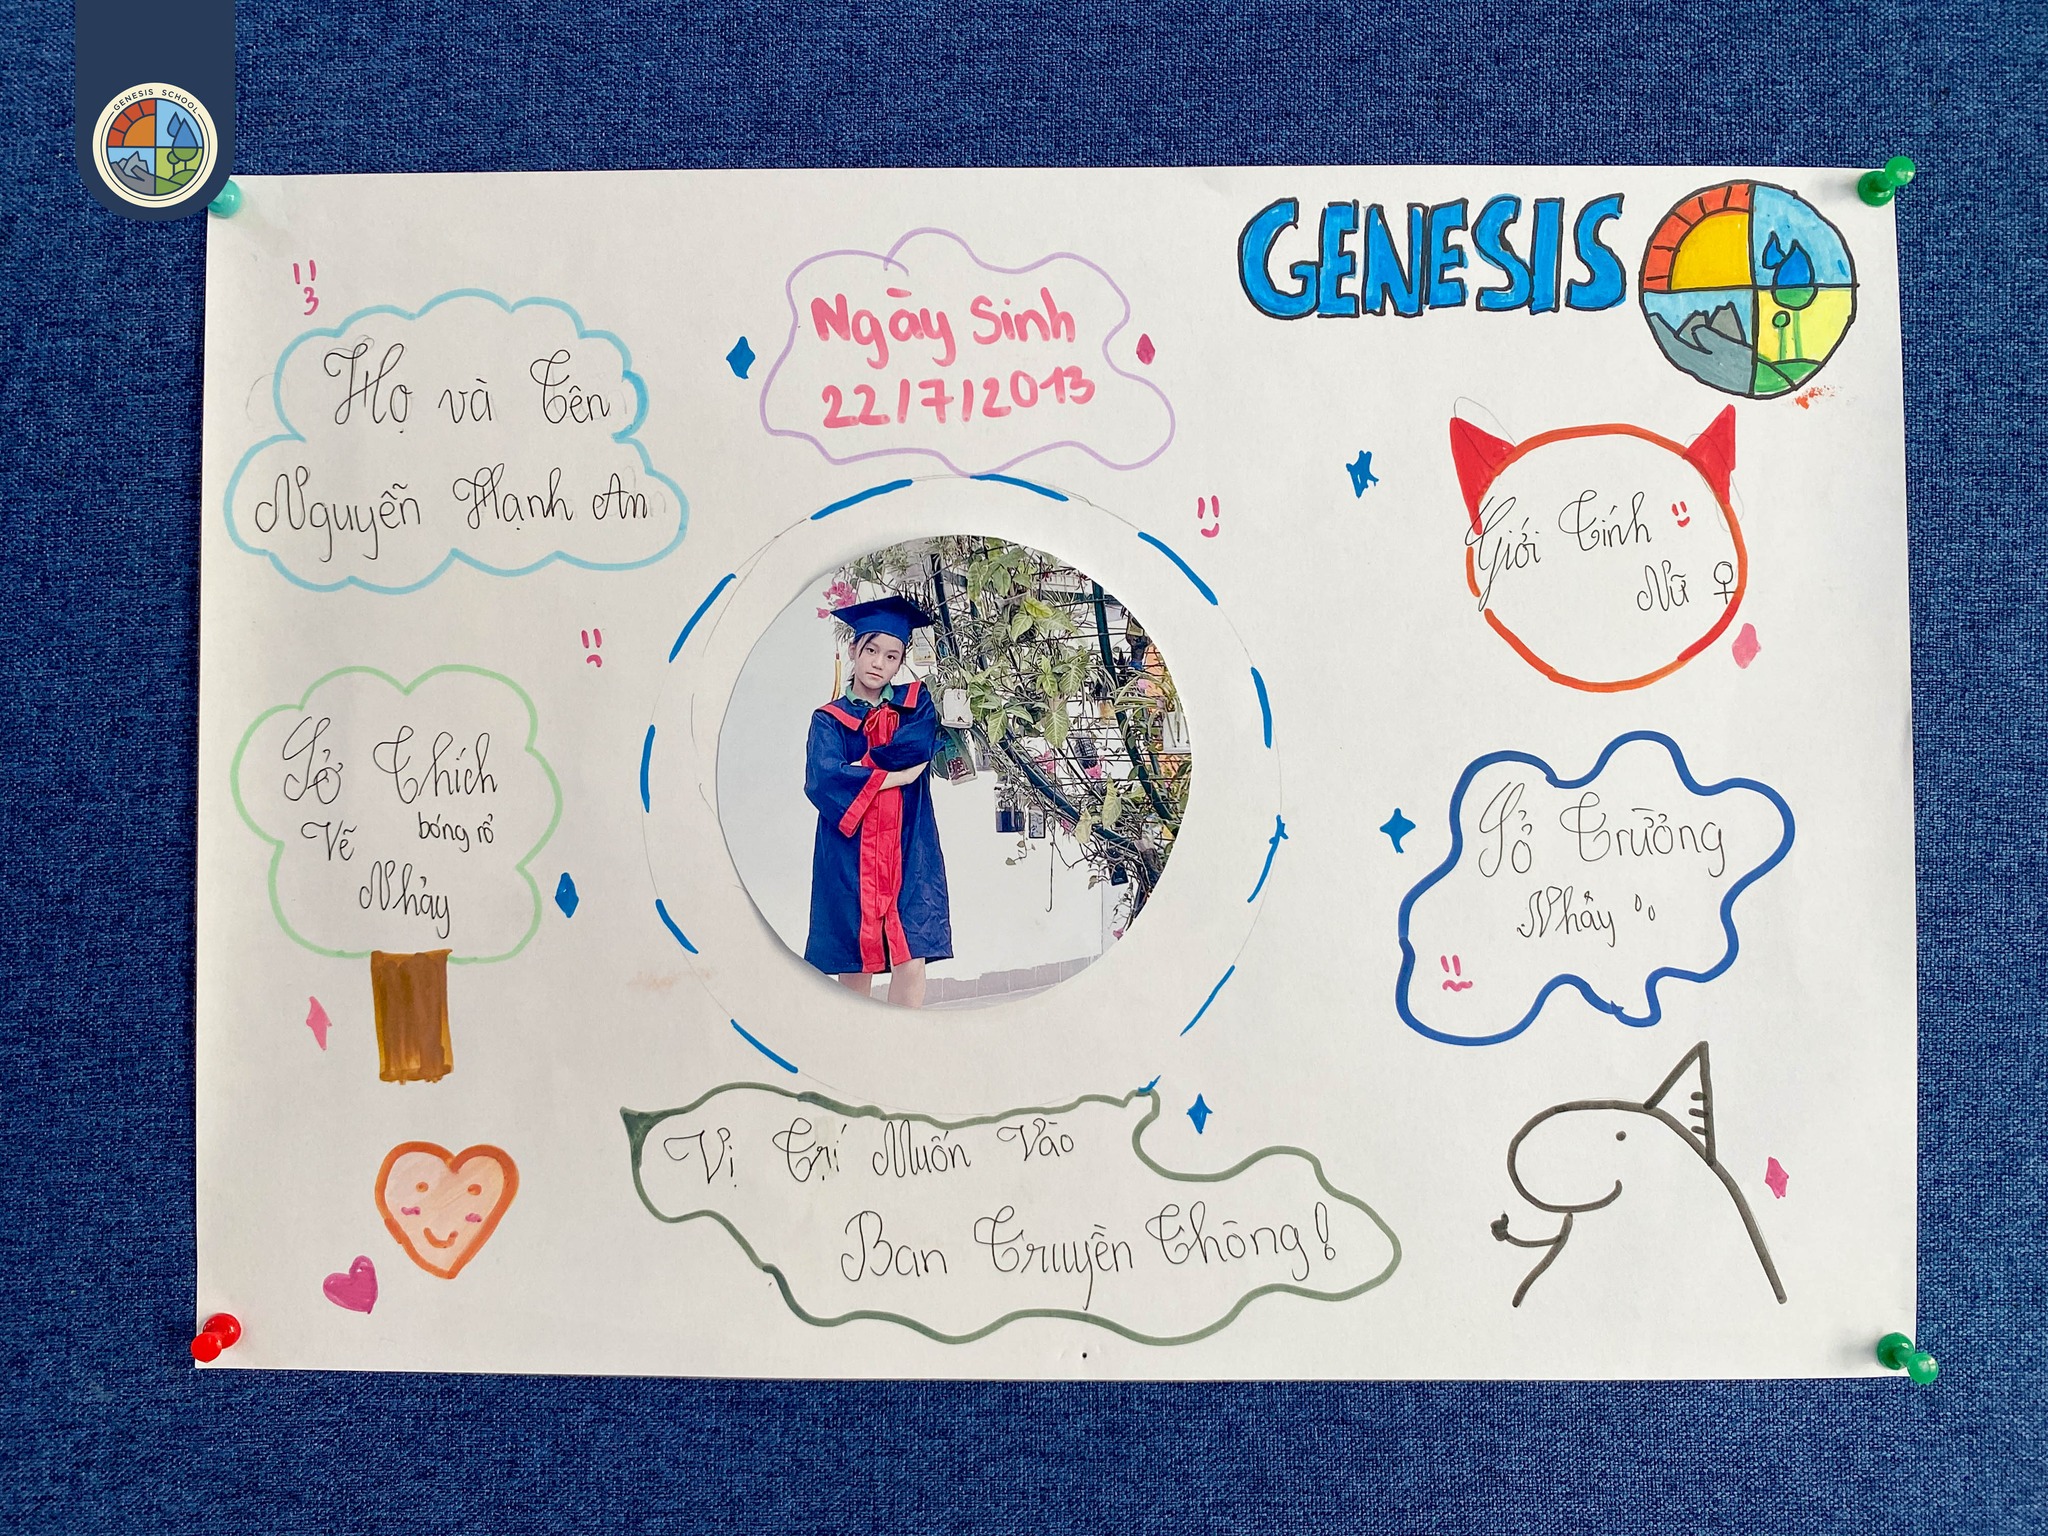 GENESIS SCHOOL
GENESIS
Họ và Tên
Nguyễn Hạnh An
Ngày Sinh
22/7/2013
Giới Tính
Nữ ♀
Sở Thích
Vẽ bóng rổ
Nhảy
Sở Trưởng
Nhảy
Vị Trí Muốn Vào
Ban Truyền Thông!